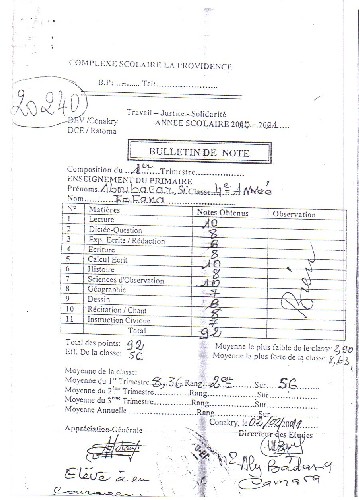 COMPLEXE SCOLAIRE LA PROVIDENCE
B.P.: Tél:
20240
Travail – Justice – Solidarité
DEV /Conakry ANNEE SCOLAIRE
DCE / Ratoma
BULLETIN DE NOTE
Composition du 1er Trimestre
ENSEIGNEMENT DU PRIMAIRE
Prénoms Aboubacar Classe 4e Année
Nom
N° Matières Notes Obtenus Observation
1 Lecture 10
2 Dictée-Question 8
3 Exp. Ecrite / Rédaction 6
4 Ecriture 8
5 Calcul Ecrit 10
6 Histoire 8
7 Sciences d'Observation 10
8 Géographie
9 Dessin
10 Récitation / Chant 8
11 Instruction Civique
Total 92
Total des points: 92 Moyenne la plus faible de la classe:
Eff. De la classe: 56 Moyenne la plus forte de la classe:
Moyenne de la classe:
Moyenne du 1er Trimestre 8,36 Rang 2e Sur 56
Moyenne du 2ème Trimestre Rang Sur
Moyenne du 3ème Trimestre Rang Sur
Moyenne Annuelle Rang Sur
Conakry, le
Appréciation-Générale Directeur des Etudes
Elève à en